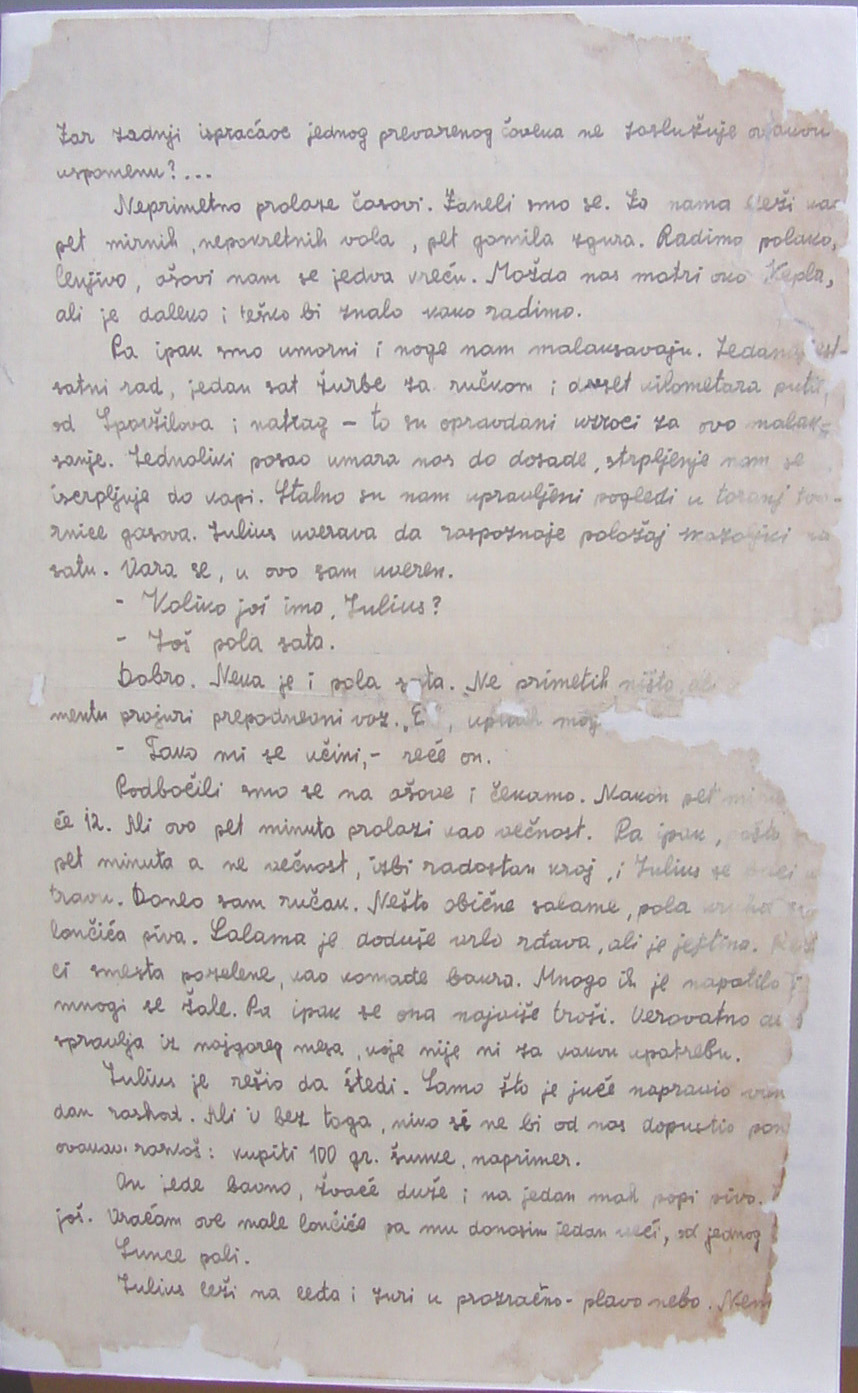 Zar zadnji ispraćaoc jednog prevarenog čoveka ne zaslužuje ovakvu
uspomenu?...
Neprimetno prolaze časovi. Zaneli smo se. Za nama leži kao
pet mirnih, nepokretnih vola, pet gomila zgura. Radimo polako,
lenjivo, ašovi nam se jedva kreću. Možda nas motri oko Kepla,
ali je daleko i teško bi znalo kako radimo.
Pa ipak smo umorni i noge nam malaksavaju. Jedanajest-
satni rad, jedan sat žurbe za ručkom i deset kilometara puta,
od i natrag - to su opravdani uzroci za ovo malak-
sanje. Jednoliki posao umara nas do dosade, strpljenje nam se
iscrpljuje do kapi. Stalno su nam upravljeni pogledi u toranj tvo-
rnice gasova. Julius uverava da raspoznaje položaj skazaljki na
satu. Vara se, u ovo sam uveren.
- Koliko još ima, Julius?
- Još pola sata.
Dobro. Neka je i pola sata. Ne primetih ništa,
mentu projuri prepodnevni voz. moj
- Tako mi se učini,- reče on.
Podbočili smo se na ašove i čekamo. Nakon pet
će 12. Ali ovo pet minuta prolazi kao večnost. Pa ipak, pošto
pet minuta a ne večnost, izbi radostan kraj, i Julius se baci u
travu. Doneo sam ručak. Nešto obične salame, pola
lončića piva. Salama je doduše vrlo rđava, ali je jeftina.
ći smesta pozelene, kao komađe bakra. Mnogo ih je napatila i
mnogi se žale. Pa ipak se ona najviše troši. Verovatno da
spravlja iz najgoreg mesa, koje nije ni za kakvu upotrebu.
Julius je rešio da štedi. Samo što je juče napravio
dan rashod. Ali i bez toga, niko si ne bi od nas dopustio
ovakav raskoš: kupiti 100 gr. šunke, naprimer.
On jede bavno, žvaće duže i na jedan mah popi pivo.
još. Vraćam ove male lončiće pa mu donosim jedan veći, od jednog
Sunce pali.
Julius leži na leđa i zuri u prozračno-plavo nebo.